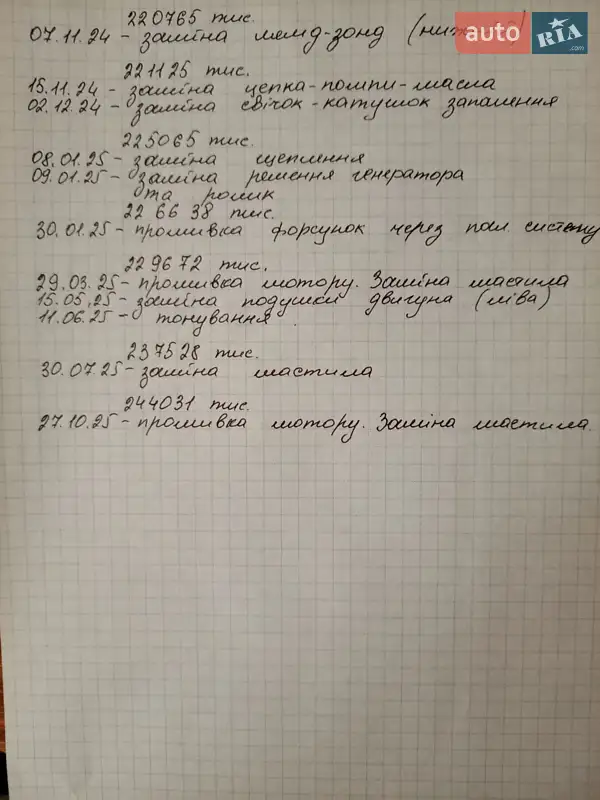 220765 тис.
07.11.24 - заміна лямд-зонд
auto RIA .com
221125 тис.
15.11.24 - заміна цепка-помпи-масла
02.12.24 - заміна свічок-катушок запалення
225065 тис.
08.01.25 - заміна щеплення
09.01.25 - заміна ремення генератора
та ролик
226638 тис.
30.01.25 - промивка форсунок через пал. систему
229672 тис.
29.03.25 - промивка мотору. Заміна мастила
15.05.25 - заміна подушки двигуна (ліва)
11.06.25 - тонування
237528 тис.
30.07.25 - заміна мастила
244031 тис.
27.10.25 - промивка мотору. Заміна мастила.